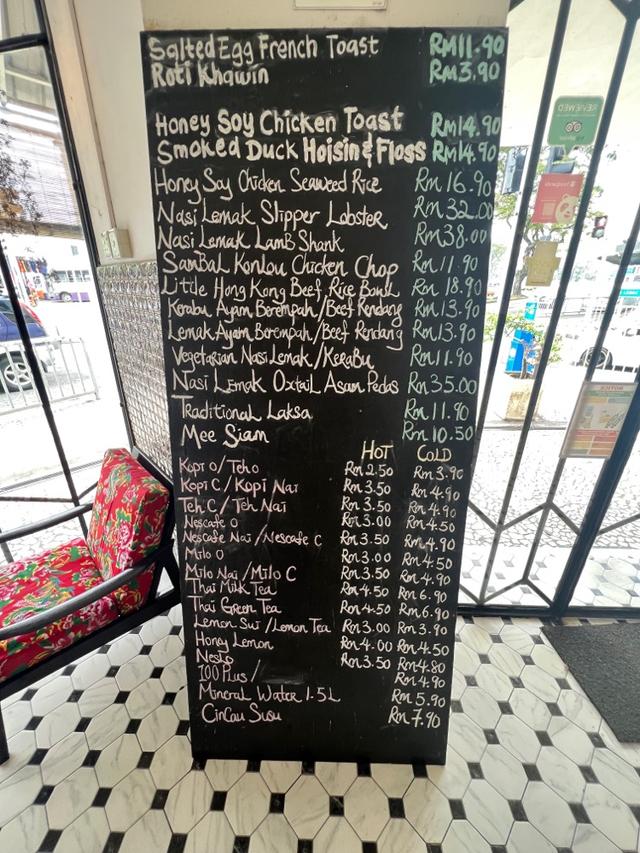 Salted Egg French Toast RM11.90
Roti Khawin RM3.90
Honey Soy Chicken Toast RM14.90
Smoked Duck Hoisin & Floss RM14.90
Honey Soy Chicken Seaweed Rice Rm 16.90
Nasi Lemak Slipper Lobster Rm 32.00
Nasi Lemak Lamb Shank Rm38.00
Sambal Konlou Chicken Chop Rm 11.90
Little Hong Kong Beef Rice Bowl Rm 18.90
Kerabu Ayam Berempah/Beef Rendang Rm13.90
Lemak Ayam Berempah/Beef Rendang Rm13.90
Vegetarian Nasi Lemak/Kerabu Rm11.90
Nasi Lemak Oxtail Asam Pedas Rm35.00
Traditional Laksa Rm 11.90
Mee Siam Rm 10.50
HOT COLD
Kopi O/Teh O Rm 2.50 Rm 3.90
Kopi C/Kopi Nai Rm 3.50 Rm 4.90
Teh C/Teh Nai Rm 3.50 Rm 4.90
Nescafe O Rm 3.00 Rm 4.50
Nescafe Nai/Nescafe C Rm 3.50 Rm 4.90
Milo O Rm 3.00 Rm 4.50
Milo Nai/Milo C Rm 3.50 Rm 4.90
Thai Milk Tea Rm 4.50 Rm 6.90
Thai Green Tea Rm 4.50 Rm 6.90
Lemon Sui/Lemon Tea Rm 3.00 Rm 3.90
Honey Lemon Rm 4.00 Rm 4.50
Neslo Rm 3.50 Rm 4.80
100 Plus/ Rm 4.90
Mineral Water 1.5L Rm 5.90
Cincau Susu Rm 7.90
REVIEWED
foodpanda